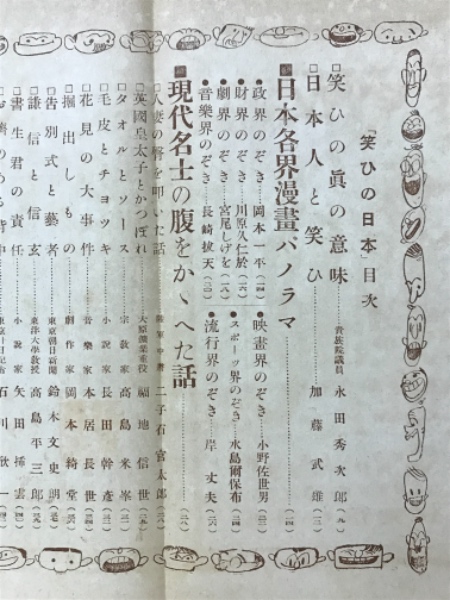 「笑ひの日本」目次
□笑ひの眞の意味 貴族院議員 永田秀次郎(九)
□日本人と笑ひ 加藤武雄(一二)
■日本各界漫畫パノラマ (一四)
●政界のぞき 岡本一平(一四)
●財界のぞき 川原久仁於(一六)
●劇界のぞき 宮尾しげを(一八)
●音樂界のぞき 長崎拔天(二〇)
●映畫界のぞき 小野佐世男(二二)
●スポーツ界のぞき 水島爾保布(二四)
●流行界のぞき 岸丈夫(二六)
■現代名士の腹をかゝへた話 (二八)
□人妻の臀を叩いた話 二子石官太郎(二八)
□英國皇太子とかつぽれ 大原鑛業重役 福地信世
□タオルとソース 宗教家 高島米峯
□毛皮とチヨツキ 小説家 長田幹彦
□花見の大事件 音樂家 本居長世
□掘出しもの 劇作家 岡本綺堂
□告別式と藝者 東京朝日新聞 鈴木文史朗
□謙信と信玄 東洋大學教授 高島平三郎
□書生君の責任 小説家 矢田挿雲
石川欣一